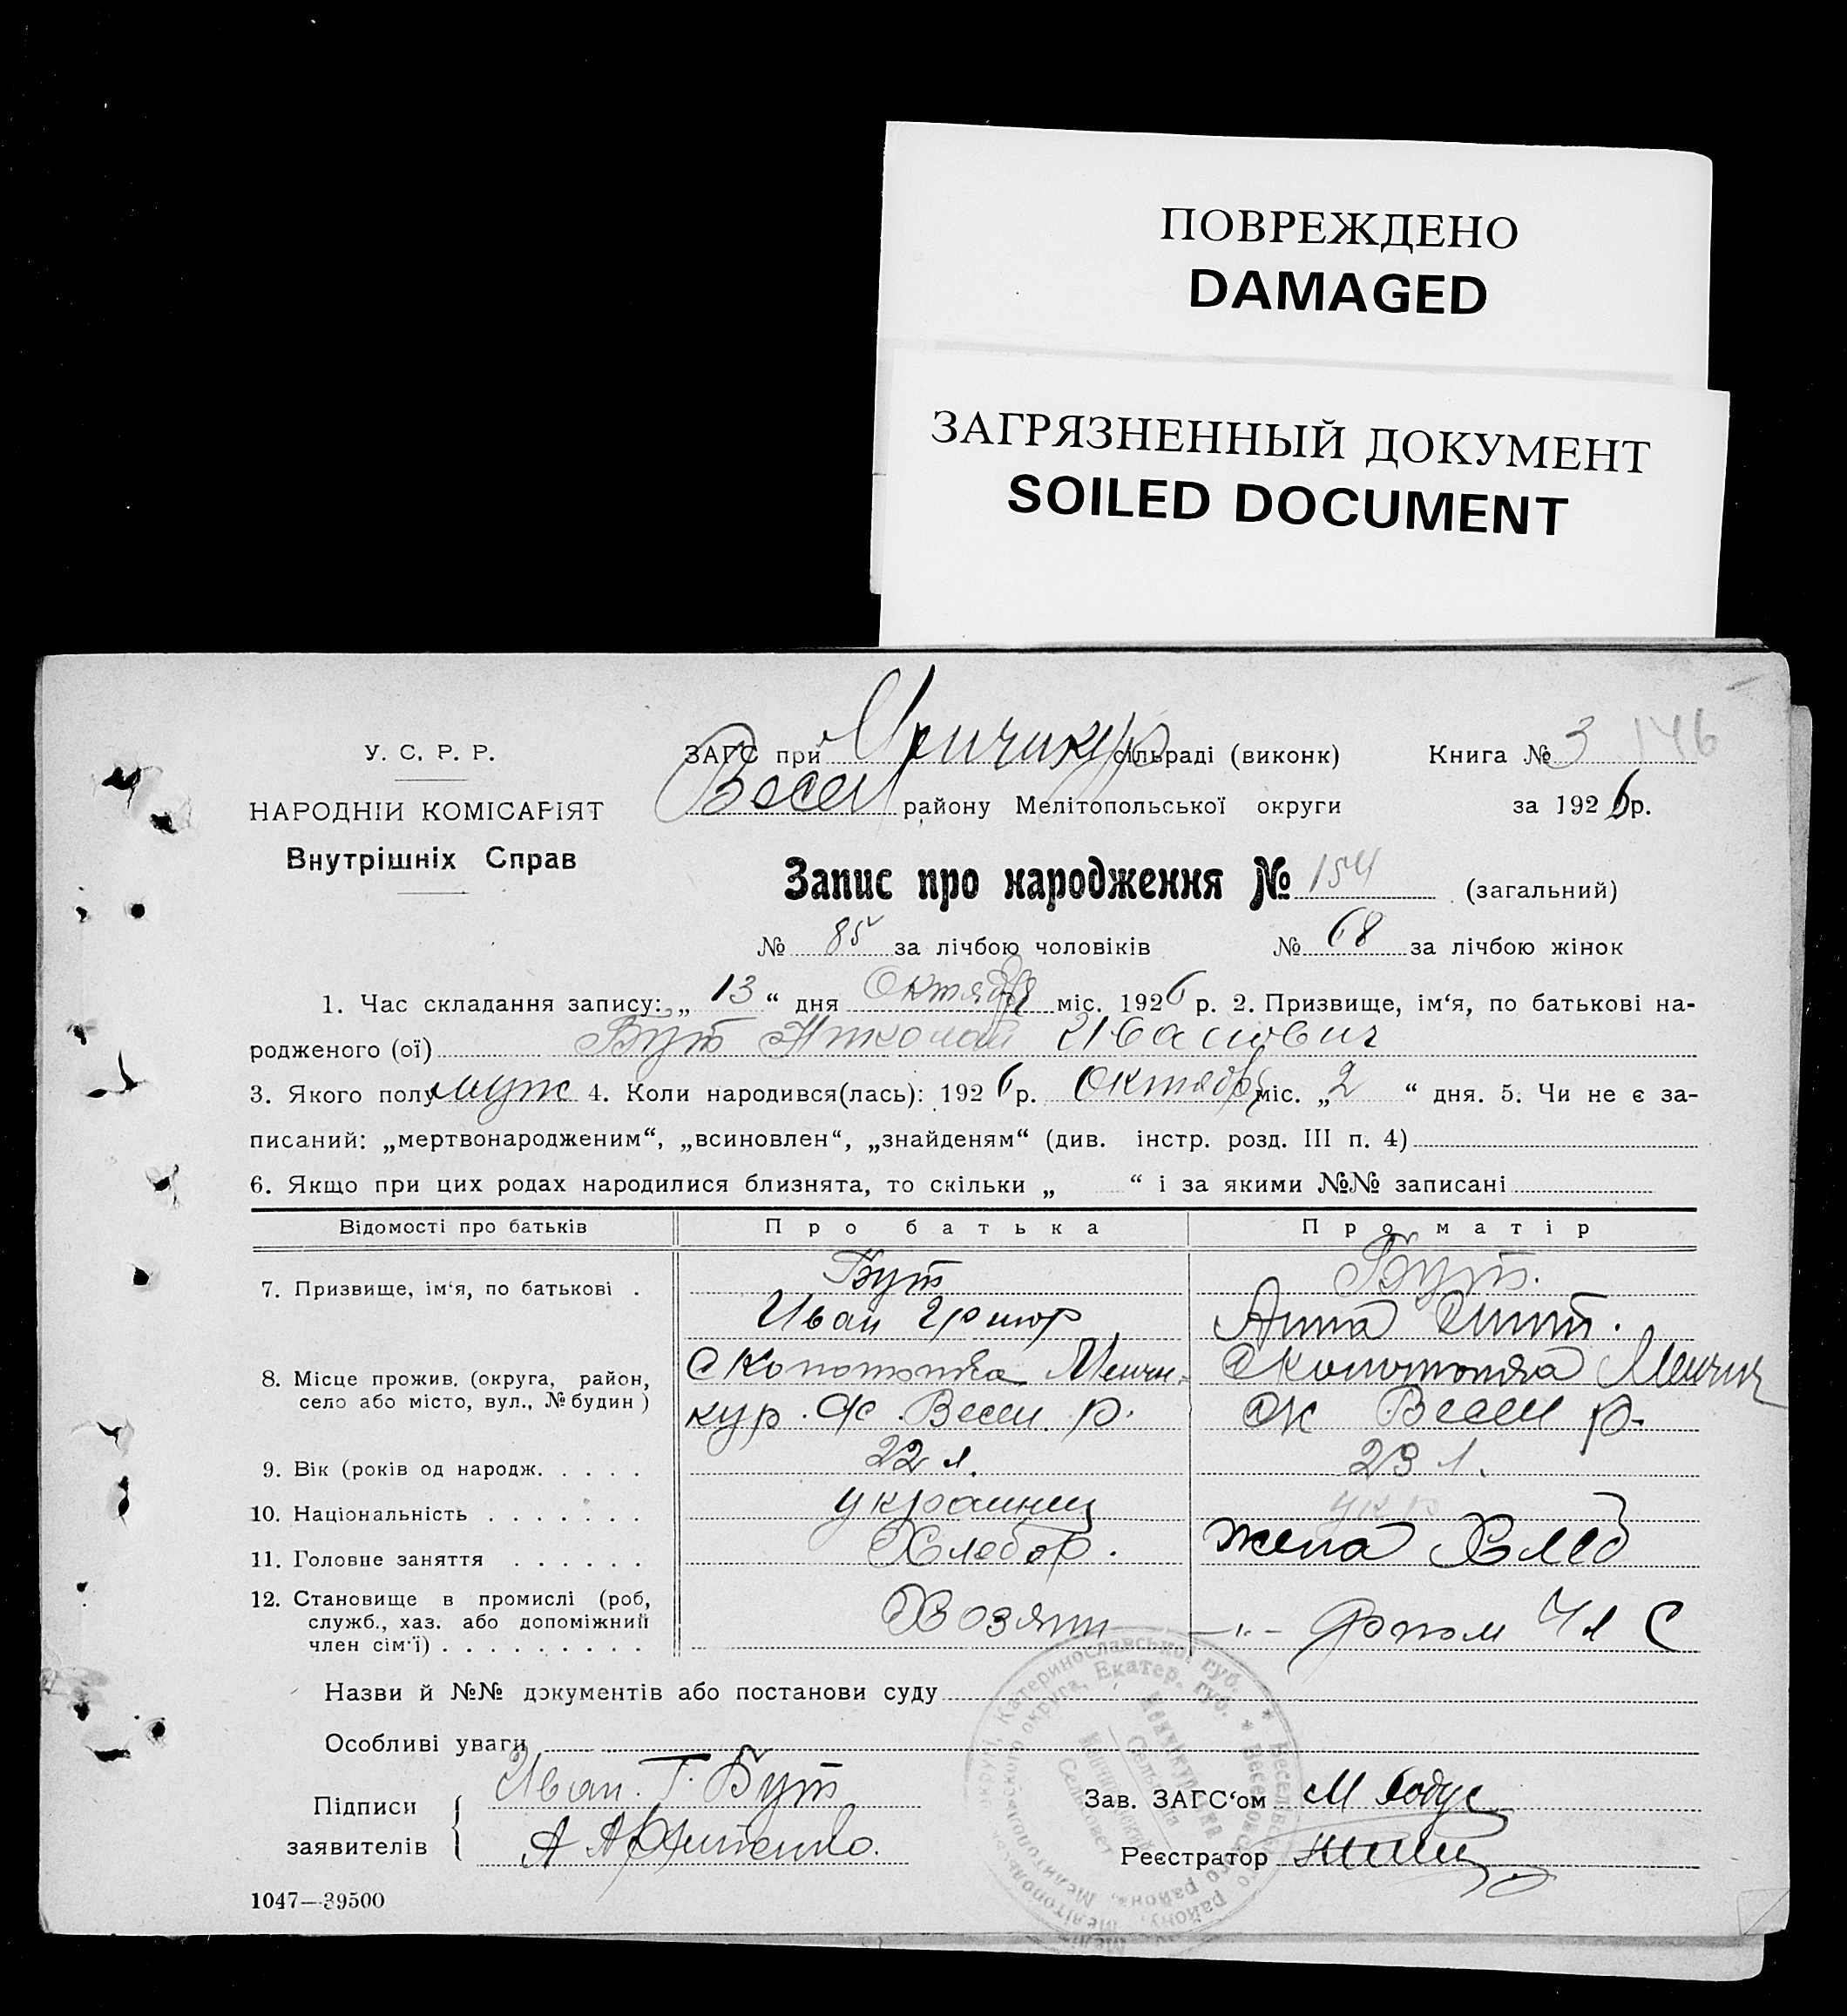 ПОВРЕЖДЕНО
DAMAGED
ЗАГРЯЗНЕННЫЙ ДОКУМЕНТ
SOILED DOCUMENT
У. С. Р. Р.
НАРОДНІЙ КОМІСАРІЯТ
Внутрішніх Справ
ЗАГС при Менчикур сільраді (виконк) Книга № 3 146
Весел району Мелітопольської округи за 1926 р.
Запис про народження № 154 (загальний)
№ 85 за лічбою чоловіків № 68 за лічбою жінок
1. Час складання запису: „ 13 “ дня Октября міс. 1926 р. 2. Призвище, ім‘я, по батькові на-
родженого (ої) Бут Николай Иванович
3. Якого полу муж 4. Коли народився(лась): 1926 р. Октября міс. „ 2 “ дня. 5. Чи не є за-
писаний: „мертвонародженим“, „всиновлен“, „знайденям“ (див. інстр. розд. III п. 4)
6. Якщо при цих родах народилися близнята, то скільки „ “ і за якими №№ записані
Відомості про батьків Про батька Про матір
7. Призвище, ім‘я, по батькові . Бут Бут.
Иван Григор Анна
8. Місце прожив. (округа, район, село або місто, вул., № будин) с Копотопка Менчи- с Копотопка Менчик
кур. с/с Весел. р. с/с Весел р-
9. Вік (років од народж. . . . . 22 л. 23 л.
10. Національність . . . . . . . украинец укр
11. Головне заняття . . . . . . Хлебор. жена Хлеб
12. Становище в промислі (роб, служб., хаз. або допоміжний член сім‘ї) . . . . . . . . . Хозяин -„- Чл С
Назви й №№ документів або постанови суду
Особливі уваги
Підписи заявителів { Иван. Г. Бут
Зав. ЗАГС‘ом
Реєстратор
1047—39500